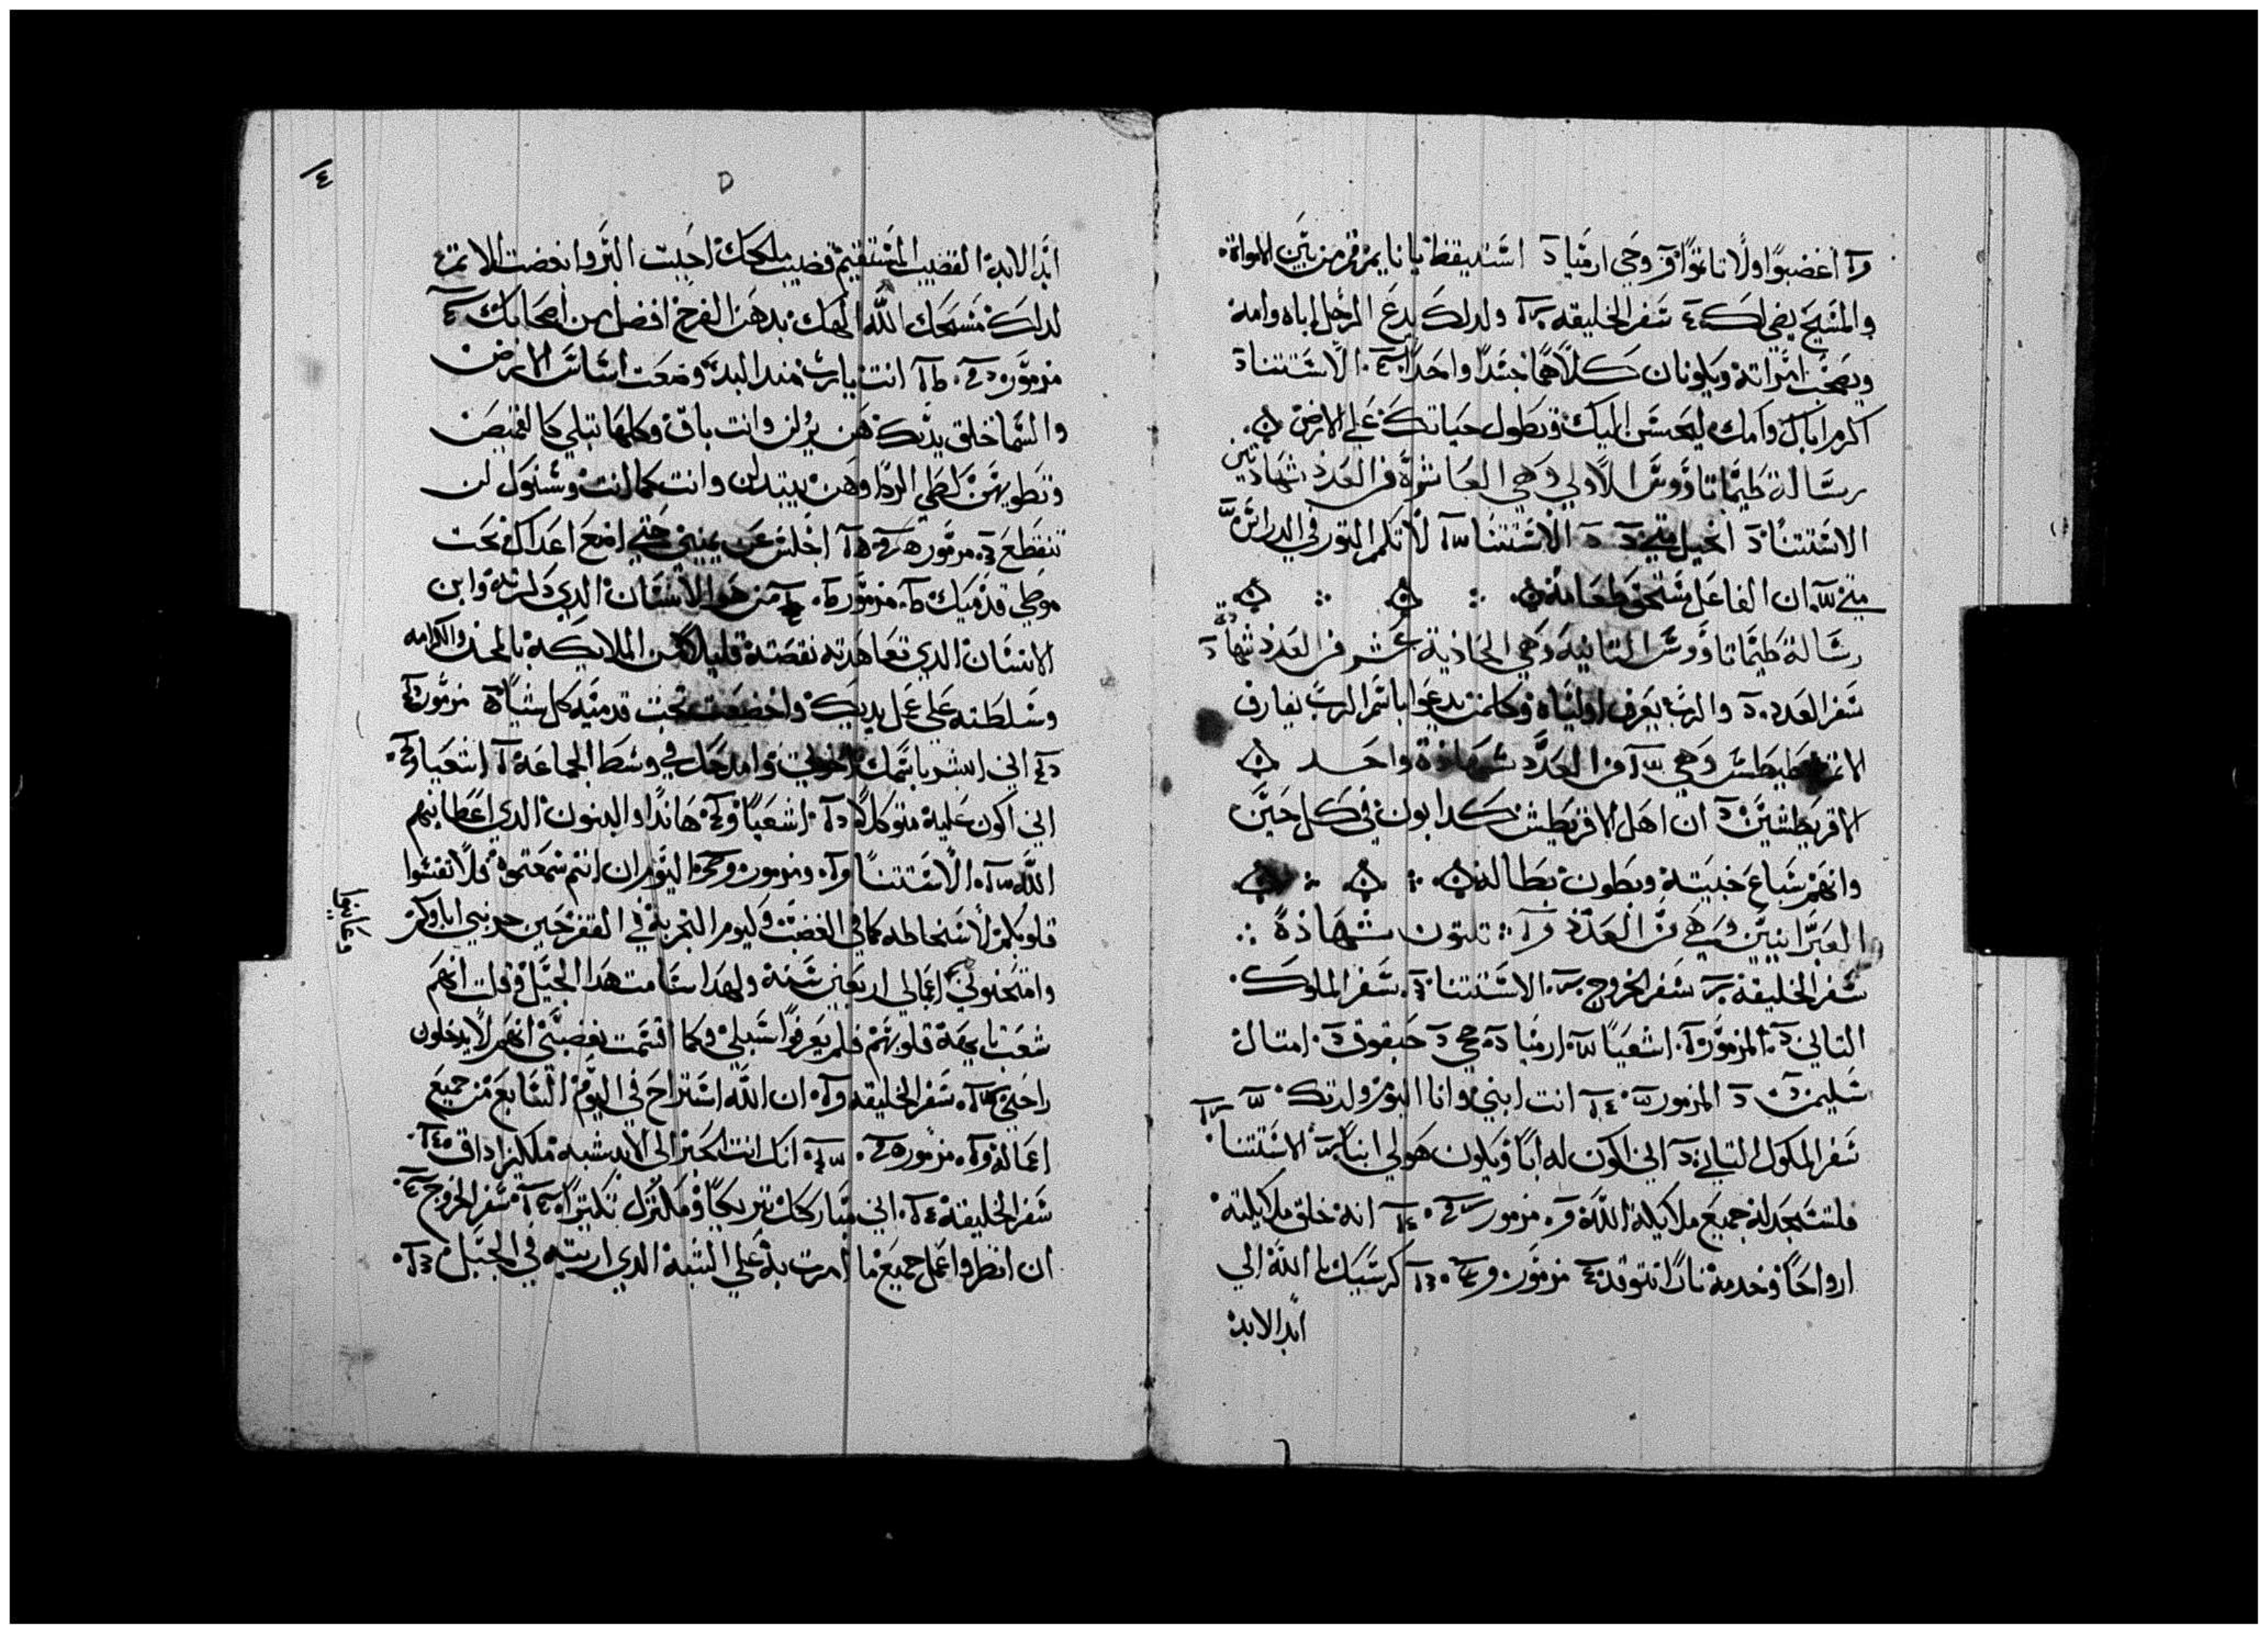 اغضبوا ولا تاتموا وحي ارميا استيقظ يا نايم وقم من بين الاموات
والمسيح يضي لك سفر الخليقه ولدلك يدع الرجل اباه وامه
ويصحب امراته ويكونان كلاهما جسدا واحدا الاستتنا
اكرم اباك وامك ليحسن اليك وتطول حياتك على الارض
رسالة طيماتاووس الاولي وهي العاشرة في العدد شهادتين
الاستتنا انجيل متي الاستتنا لا تكم التور في الدراس
متي ان الفاعل مستحق طعامه
رسالة طيماتاووس التانيه وهي الحاديه عشر في العدد شهادة
سفر العدد والرب يعرف اولياه وكلمن يدعوا باسم الرب يفارق
الاتم طيطس وهي من العدد شهادة واحد
الاقريطشيين ان اهل الاقريطش كدابون في كل حين
وانهم سباع خبيته وبطون بطاله
العبرانيين وهي من العدد تلتون شهادة
سفر الخليقة سفر الخروج الاستتنا سفر الملوك
التاني المزمور اشعيا ارميا حجي حبقوق امتال
سليمن المزمور انت ابني وانا اليوم ولدتك
سفر الملوك التاني اني اكون له ابا ويكون هو لي ابنا الاستتنا
فلتسجد له جميع ملايكة الله مزمور انه خلق ملايكته
ارواحا وخدمه نارا تتوقد مزمور كرسيك يا الله الي
ابد الابد
٤
ابد الابد القضيب المستقيم قضيب ملكك احببت البر وابغضت الاتم
لدلك مسحك الله الهك بدهن الفرح افضل من اصحابك
مزمور انت يارب مند البدء وضعت اساس الارض
والسما خلق يديك هن يزلن وانت باق وكلها تبلي كالقميص
وتطويهن كطي الردا وهن يبتدلن وانت كما انت وسنوك لن
تنقطع مزمور اجلس عن يميني حتي اضع اعداك تحت
موطي قدميك مزمور من هو الانسان الدي دكرته وابن
الانسان الدي تعاهدته نقصته قليلا من الملايكة بالمجد والكرامه
وسلطته علي عمل يديك واخضعت تحت قدميه كل شيا مزمور
اني ابشر باسمك اخوتي وامدحك في وسط الجماعة اشعيا
اني اكون عليه متوكلا اشعيا هاندا والبنون الدي اعطانيهم
الله الاستتنا ومزمور اليوم ان انتم سمعتموه فلا تقسوا
قلوبكم لاسخاطه كما في الغضب وليوم التجربة في القفر حين جربني اباوكم
وامتحنوني اعمالي اربعين سنة ولهدا سامت هدا الجيل وقلت انهم
شعب تايهة قلوبهم فلم يعرفوا سبلي وكما اقسمت بغضبي انهم لا يدخلون
راحتي سفر الخليقه ان الله استراح في اليوم السابع من جميع
اعماله مزمور انك انت الحبر الى الابد شبه ملكيزاداق
سفر الخليقة اني مباركك تبريكا ومكترك تكتيرا سفر الخروج
ان انظر واعمل جميع ما امرت به علي الشبه الدي اريته في الجبل